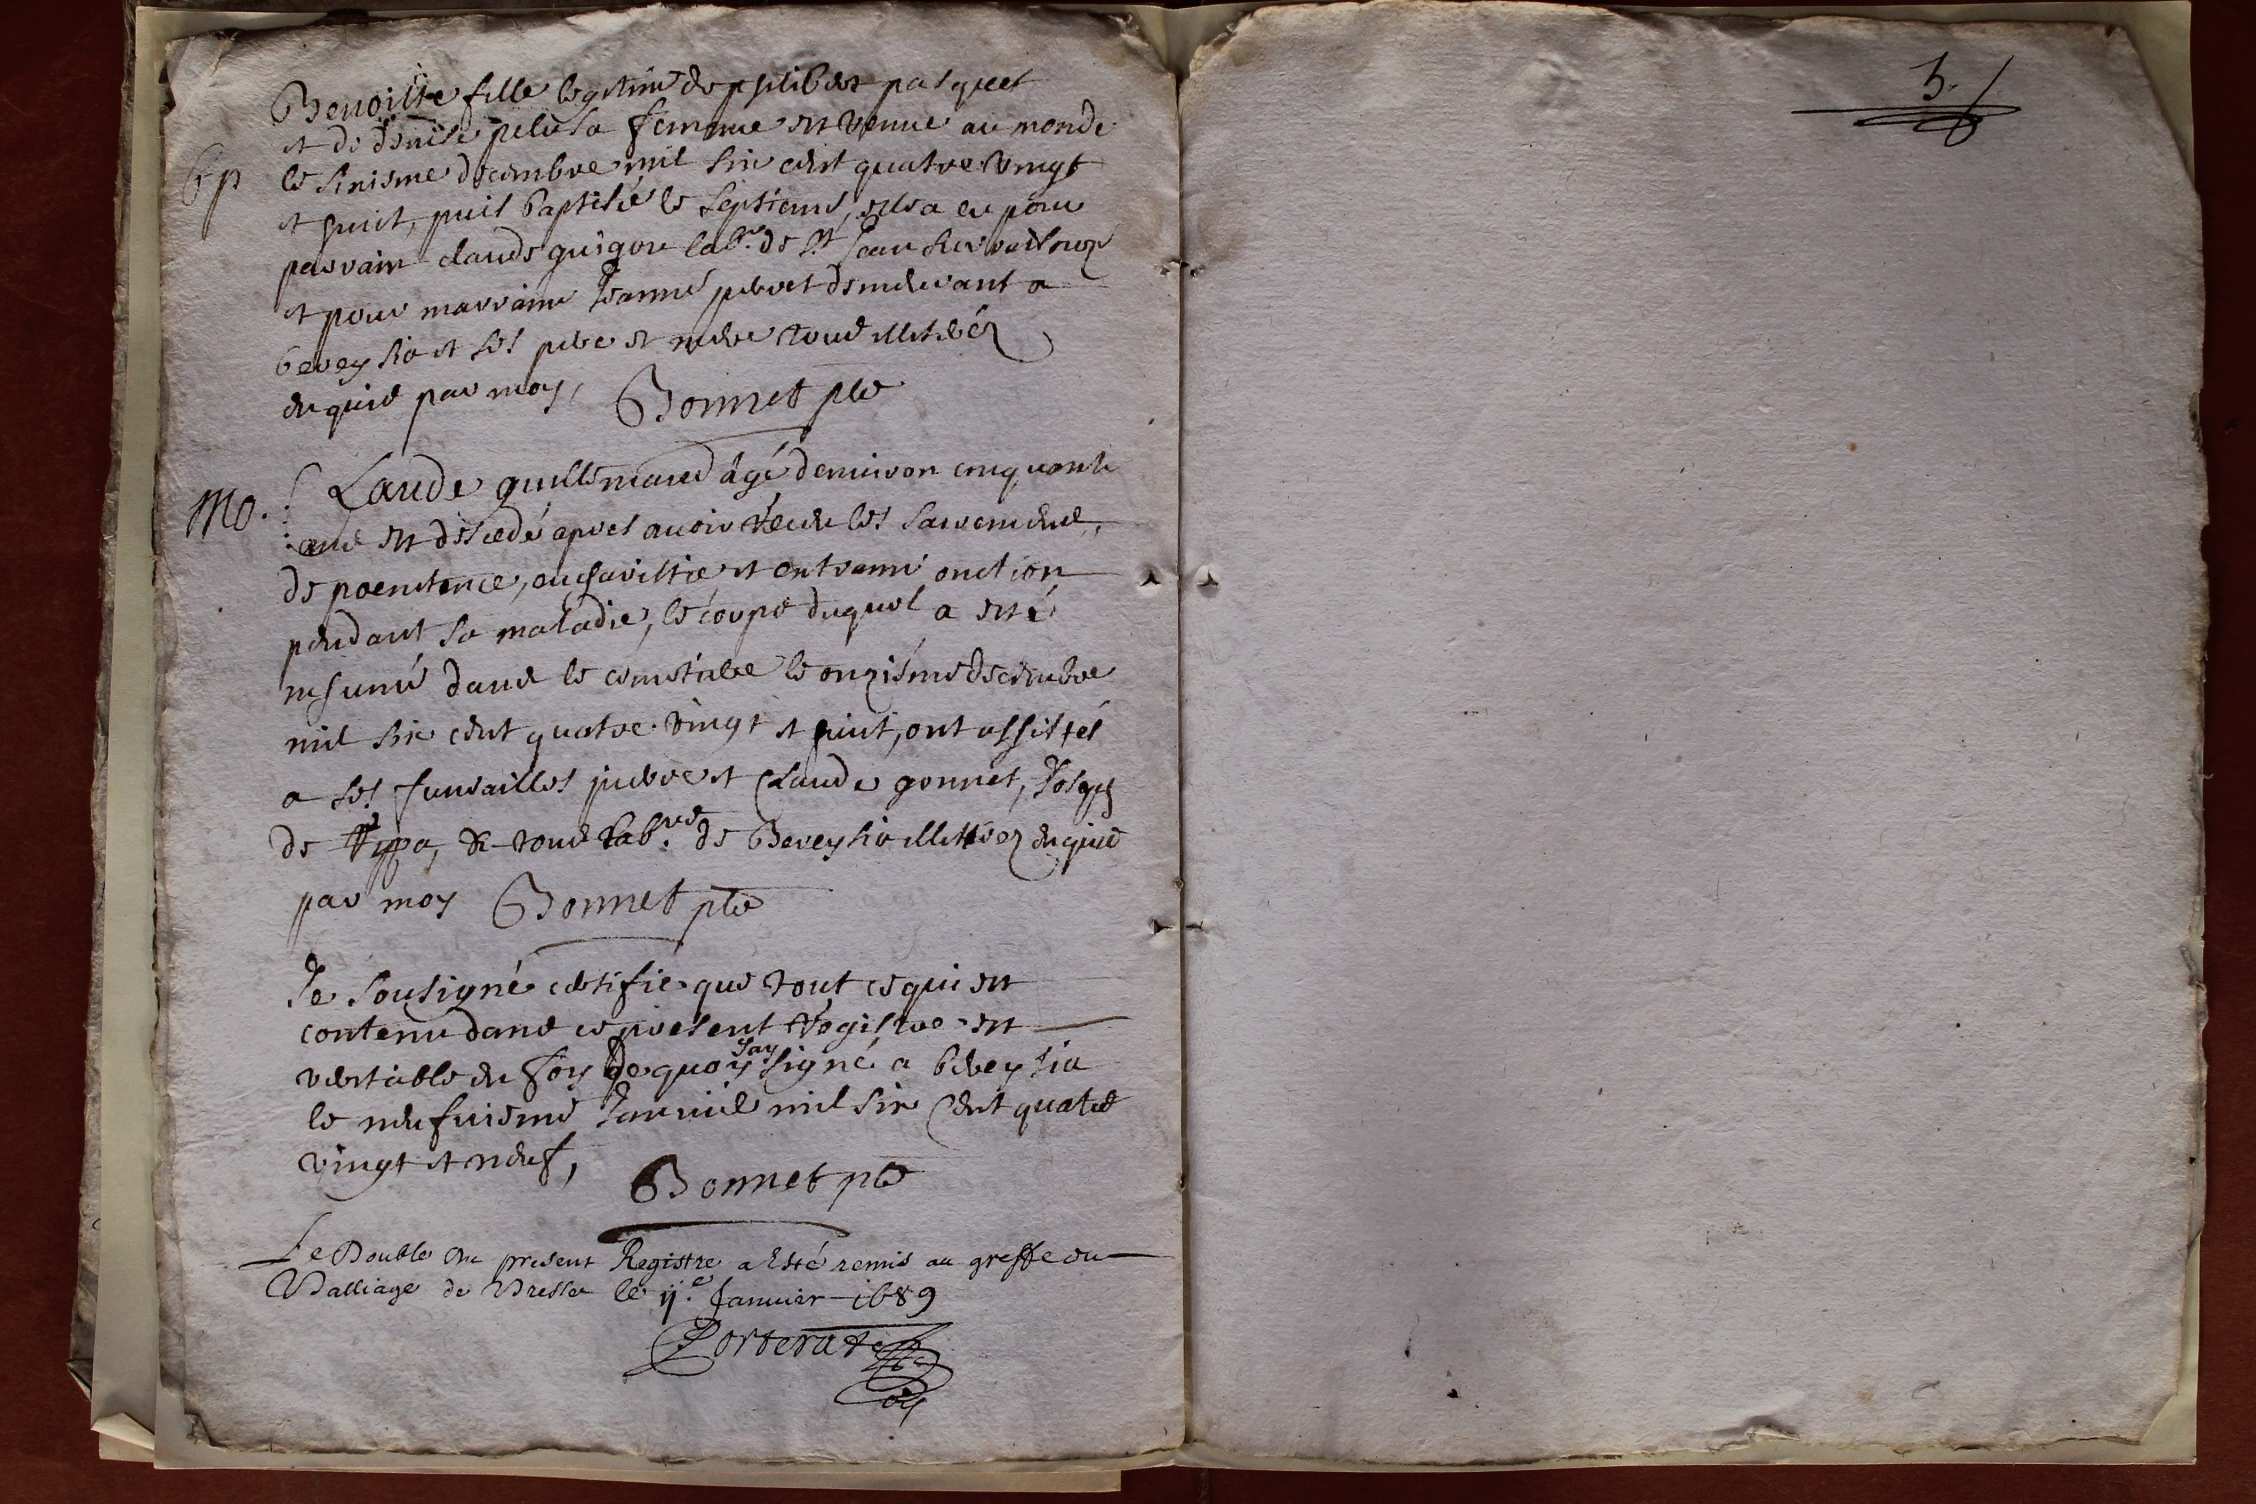 Benoitte fille legitime de philibert pasquet
et de denise pelus sa femme est venue au monde
bp
le sixieme decembre mil six cent quatre vingt
et huit, puis baptisée le septieme, elle a eu pour
parrain claude guigue lab.r de St Jean sur
et pour marraine Jeanne perret demeurant a
bereysia et ses pere et mere tous illitréz
enquis par moy, Bonnet ptre
Mo.
Claude guillemaud âgé denviron cinquante
ans est décedé apres auoir receu les sacremens,
de poenitence, eucharistie et extreme onction
pendant sa maladie, le corps duquel a esté
inhumé dans le cimetiere le onziéme decembre
mil six cent quatre vingt et huit, ont assistés
a ses funerailles pierre et Claude gonnet, Joseph
de & tous lab.rs de Bereysia illitréz enquis
par moy Bonnet ptre
Je sousigné certifie que tout ce qui est
contenu dans ce present régistre est
veritable en foy de quoy jay signé a bereysia
le neufuieme Januier mil six cent quatre
vingt et neuf,
Bonnet ptre
Le Double du present Registre a esté remis au greffe du
Balliage de Bresse le ij.e Januier 1689
3.